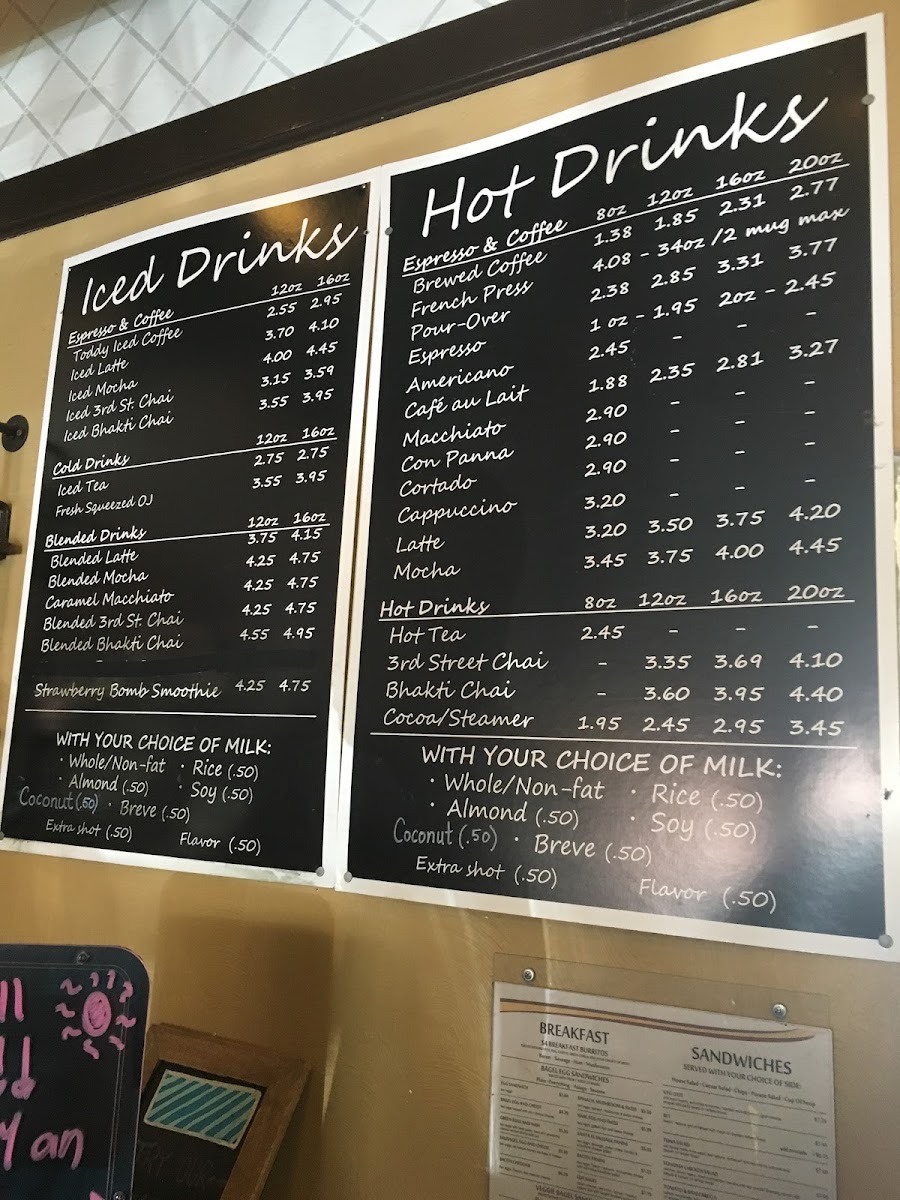 Iced Drinks
Espresso & Coffee 12oz 16oz
Toddy Iced Coffee 2.55 2.95
Iced Latte 3.70 4.10
Iced Mocha 4.00 4.45
Iced 3rd St. Chai 3.15 3.59
Iced Bhakti Chai 3.55 3.95
Cold Drinks 12oz 16oz
Iced Tea 2.75 2.75
Fresh Squeezed OJ 3.55 3.95
Blended Drinks 12oz 16oz
Blended Latte 3.75 4.15
Blended Mocha 4.25 4.75
Caramel Macchiato 4.25 4.75
Blended 3rd St. Chai 4.25 4.75
Blended Bhakti Chai 4.55 4.95
Strawberry Bomb Smoothie 4.25 4.75
WITH YOUR CHOICE OF MILK:
· Whole/Non-fat · Rice (.50)
· Almond (.50) · Soy (.50)
Coconut (.50) · Breve (.50)
Extra shot (.50) Flavor (.50)
Hot Drinks
Espresso & Coffee 8oz 12oz 16oz 20oz
Brewed Coffee 1.38 1.85 2.31 2.77
French Press 4.08 - 34oz /2 mug max
Pour-Over 2.38 2.85 3.31 3.77
Espresso 1 oz - 1.95 2oz - 2.45
Americano 2.45 - - -
Café au Lait 1.88 2.35 2.81 3.27
Macchiato 2.90 - - -
Con Panna 2.90 - - -
Cortado 2.90 - - -
Cappuccino 3.20 - - -
Latte 3.20 3.50 3.75 4.20
Mocha 3.45 3.75 4.00 4.45
Hot Drinks 8oz 12oz 16oz 20oz
Hot Tea 2.45 - - -
3rd Street Chai - 3.35 3.69 4.10
Bhakti Chai - 3.60 3.95 4.40
Cocoa/Steamer 1.95 2.45 2.95 3.45
WITH YOUR CHOICE OF MILK:
· Whole/Non-fat · Rice (.50)
· Almond (.50) · Soy (.50)
Coconut (.50) · Breve (.50)
Extra shot (.50) Flavor (.50)
an
BREAKFAST
$4 BREAKFAST BURRITOS
BAGEL EGG SANDWICHES
SANDWICHES
SERVED WITH YOUR CHOICE OF SIDE: